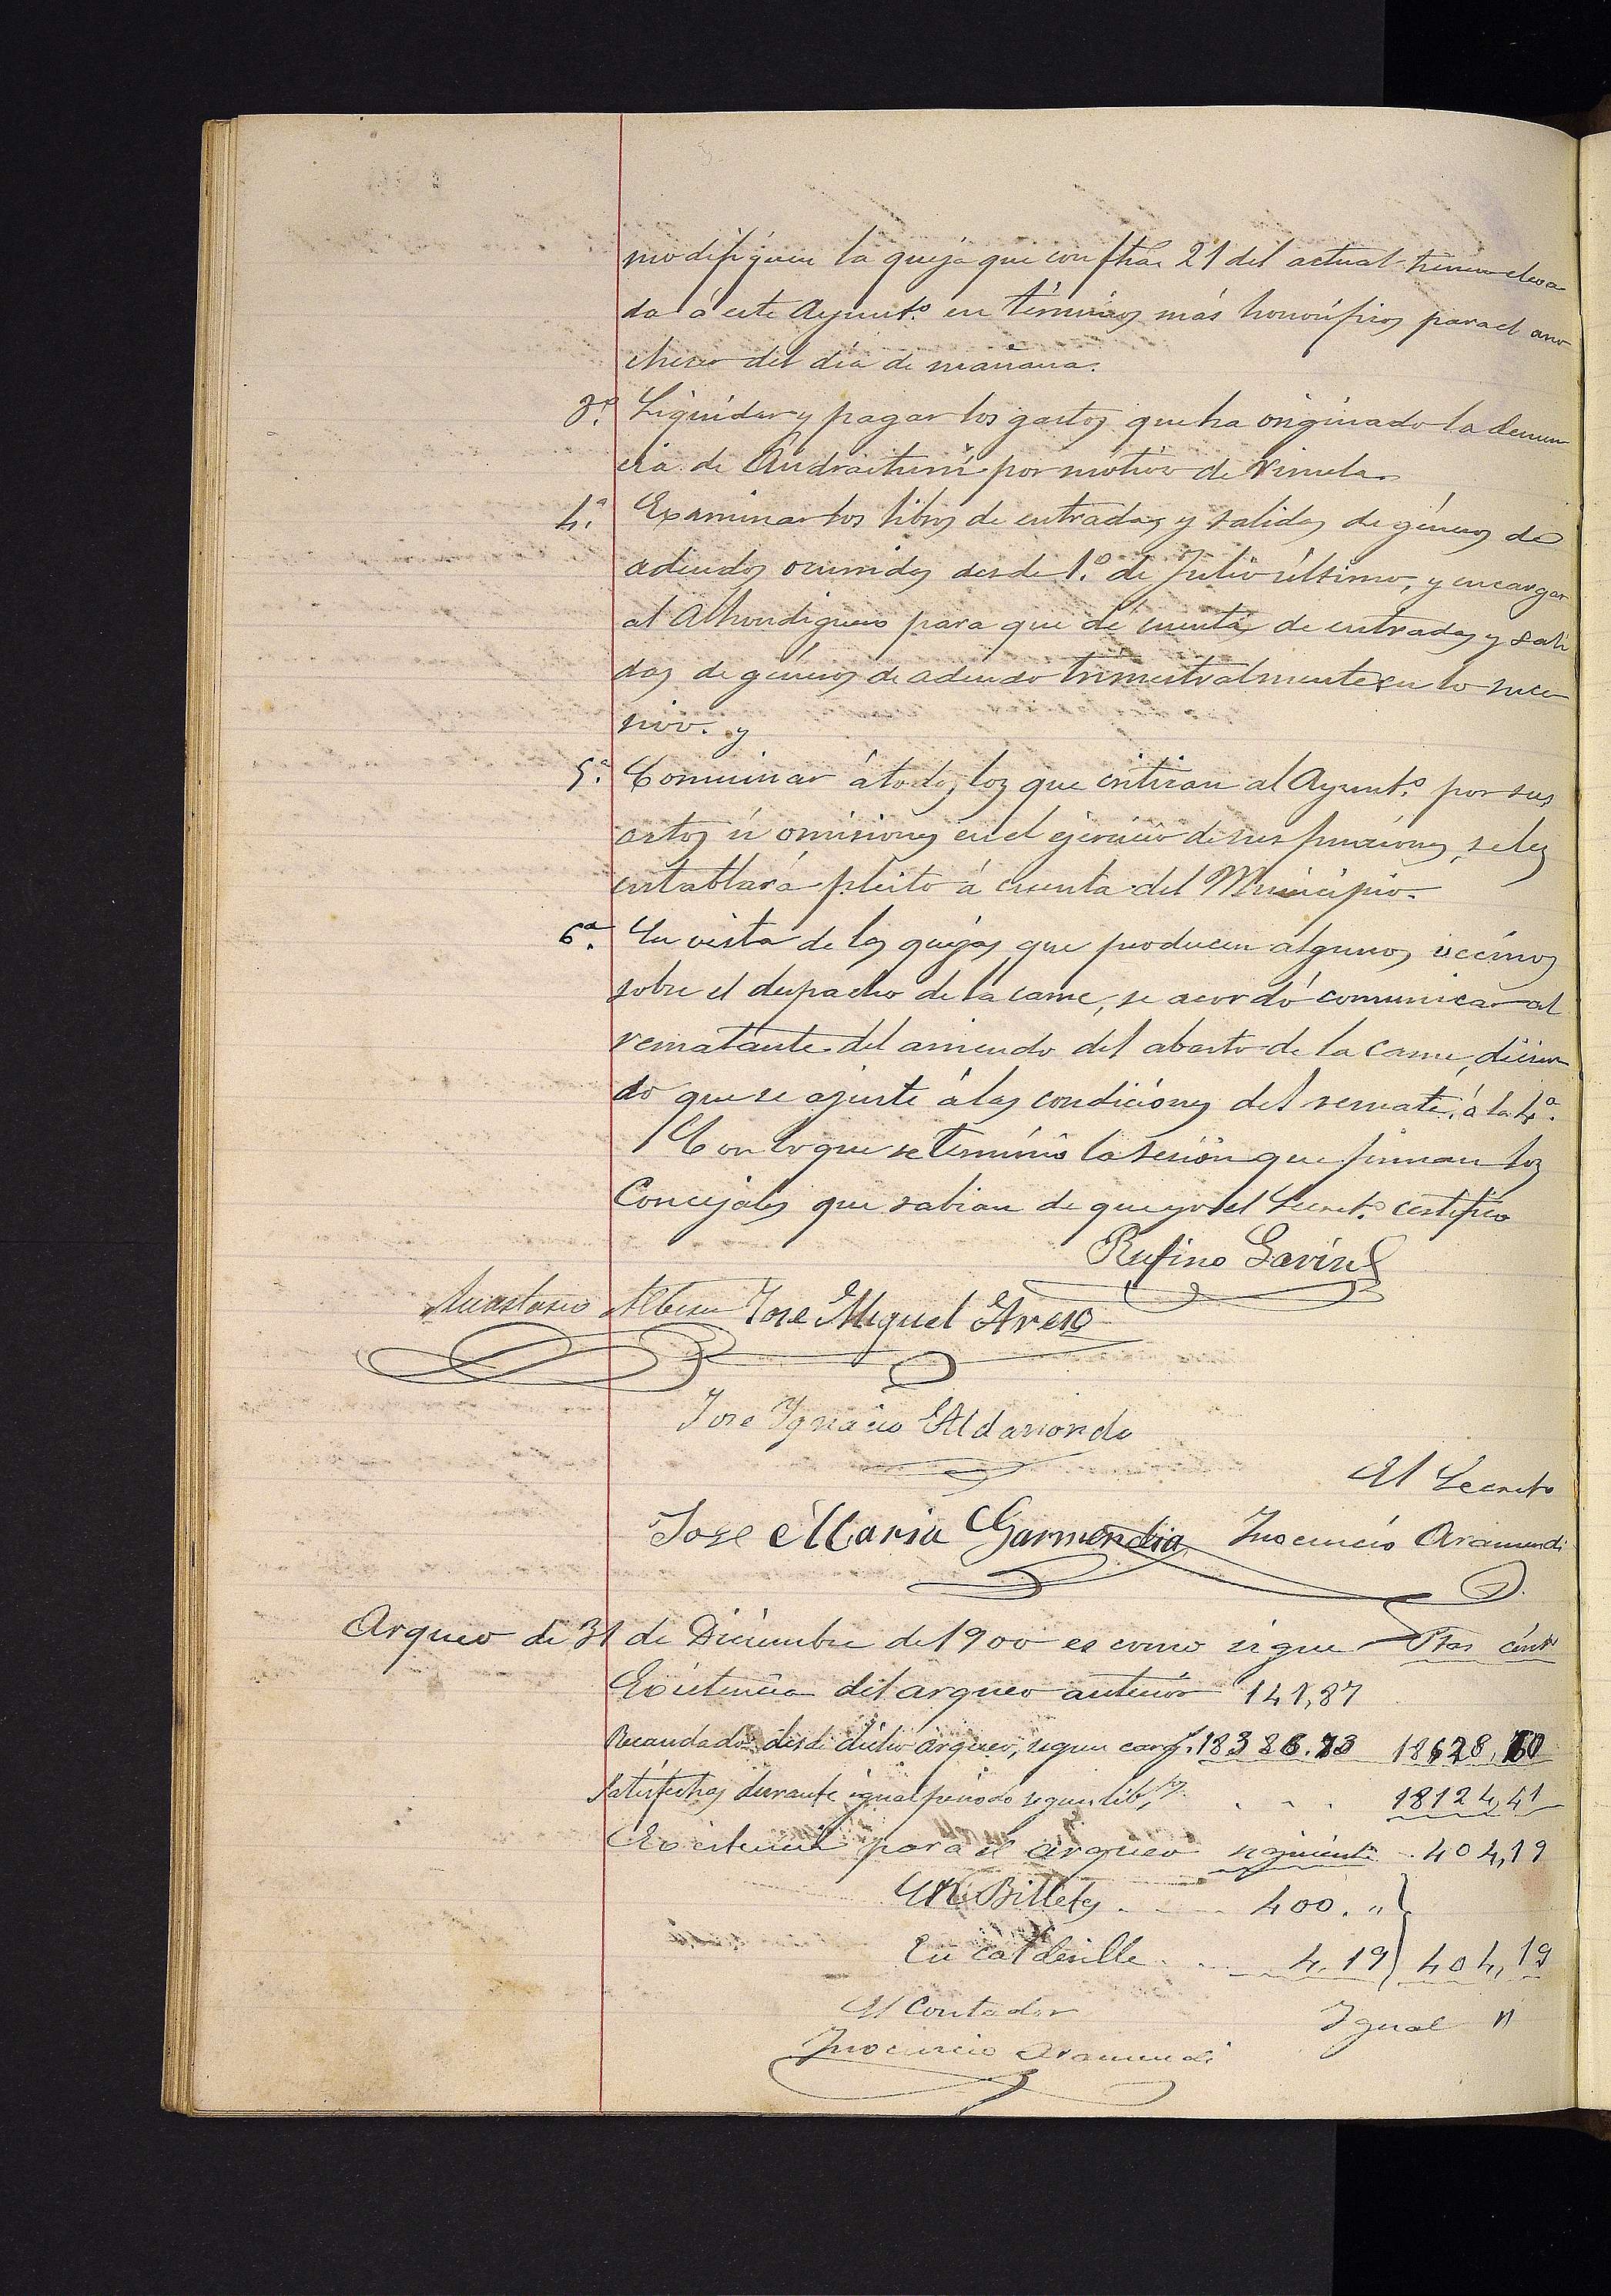 modifiquen la queja que con fha 21 del actual tienen eleva
da á este Ayunto. en términos más honoríficos para el ano
checer del día de mañana.
3.ª Liquidar y pagar los gastos que ha originado la denun
cia de por motivo de Viruela
4.ª Examinar los libros de entradas y salidas de géneros de
adeudos ocurridos desde 1.º de Julio último, y encargar
al Alhondiguero para que dé cuenta de entradas y sali
das de géneros de adeudo trimestralmente en lo suce
sivo. y
5.ª Comuinar á todos los que critican al Ayunto. por sus
actos ú omisiones en el ejercicio de sus funciones, se les
entablará pleito á cuenta del Municipio.
6.ª En vista de las quejas que producen algunos vecinos
sobre el despacho de la carne, se acordó comunicar al
rematante del arriendo del abasto de la carne, dicien
do que se ajuste á las condiciones del remate, á la 4.ª
Con lo que se terminó la sesión que firman los
Concejales que sabian de que yo el Secreto. certifico
Rufino Gavin
Anastasio Albisu José Miguel Areso
Jose Ygnacio Aldanondo
El Secreto
Jose Maria Garmendia Inocencio Aramendi
Arqueo de 31 de Diciembre de 1900 es como sigue Ptas cénts
Existencia del arqueo anterior 141,87
Recaudado desde dicho arqueo, segun carg. 18386.73 18528,60
Satisfechos durante igual período segun lib.s . . . 18124,41
Existencia para el arqueo siguiente . 404,19
En Billetes . . . . 400. "
En calderilla . . . 4,19 404,19
El Contador Igual "
Inocencio Aramendi